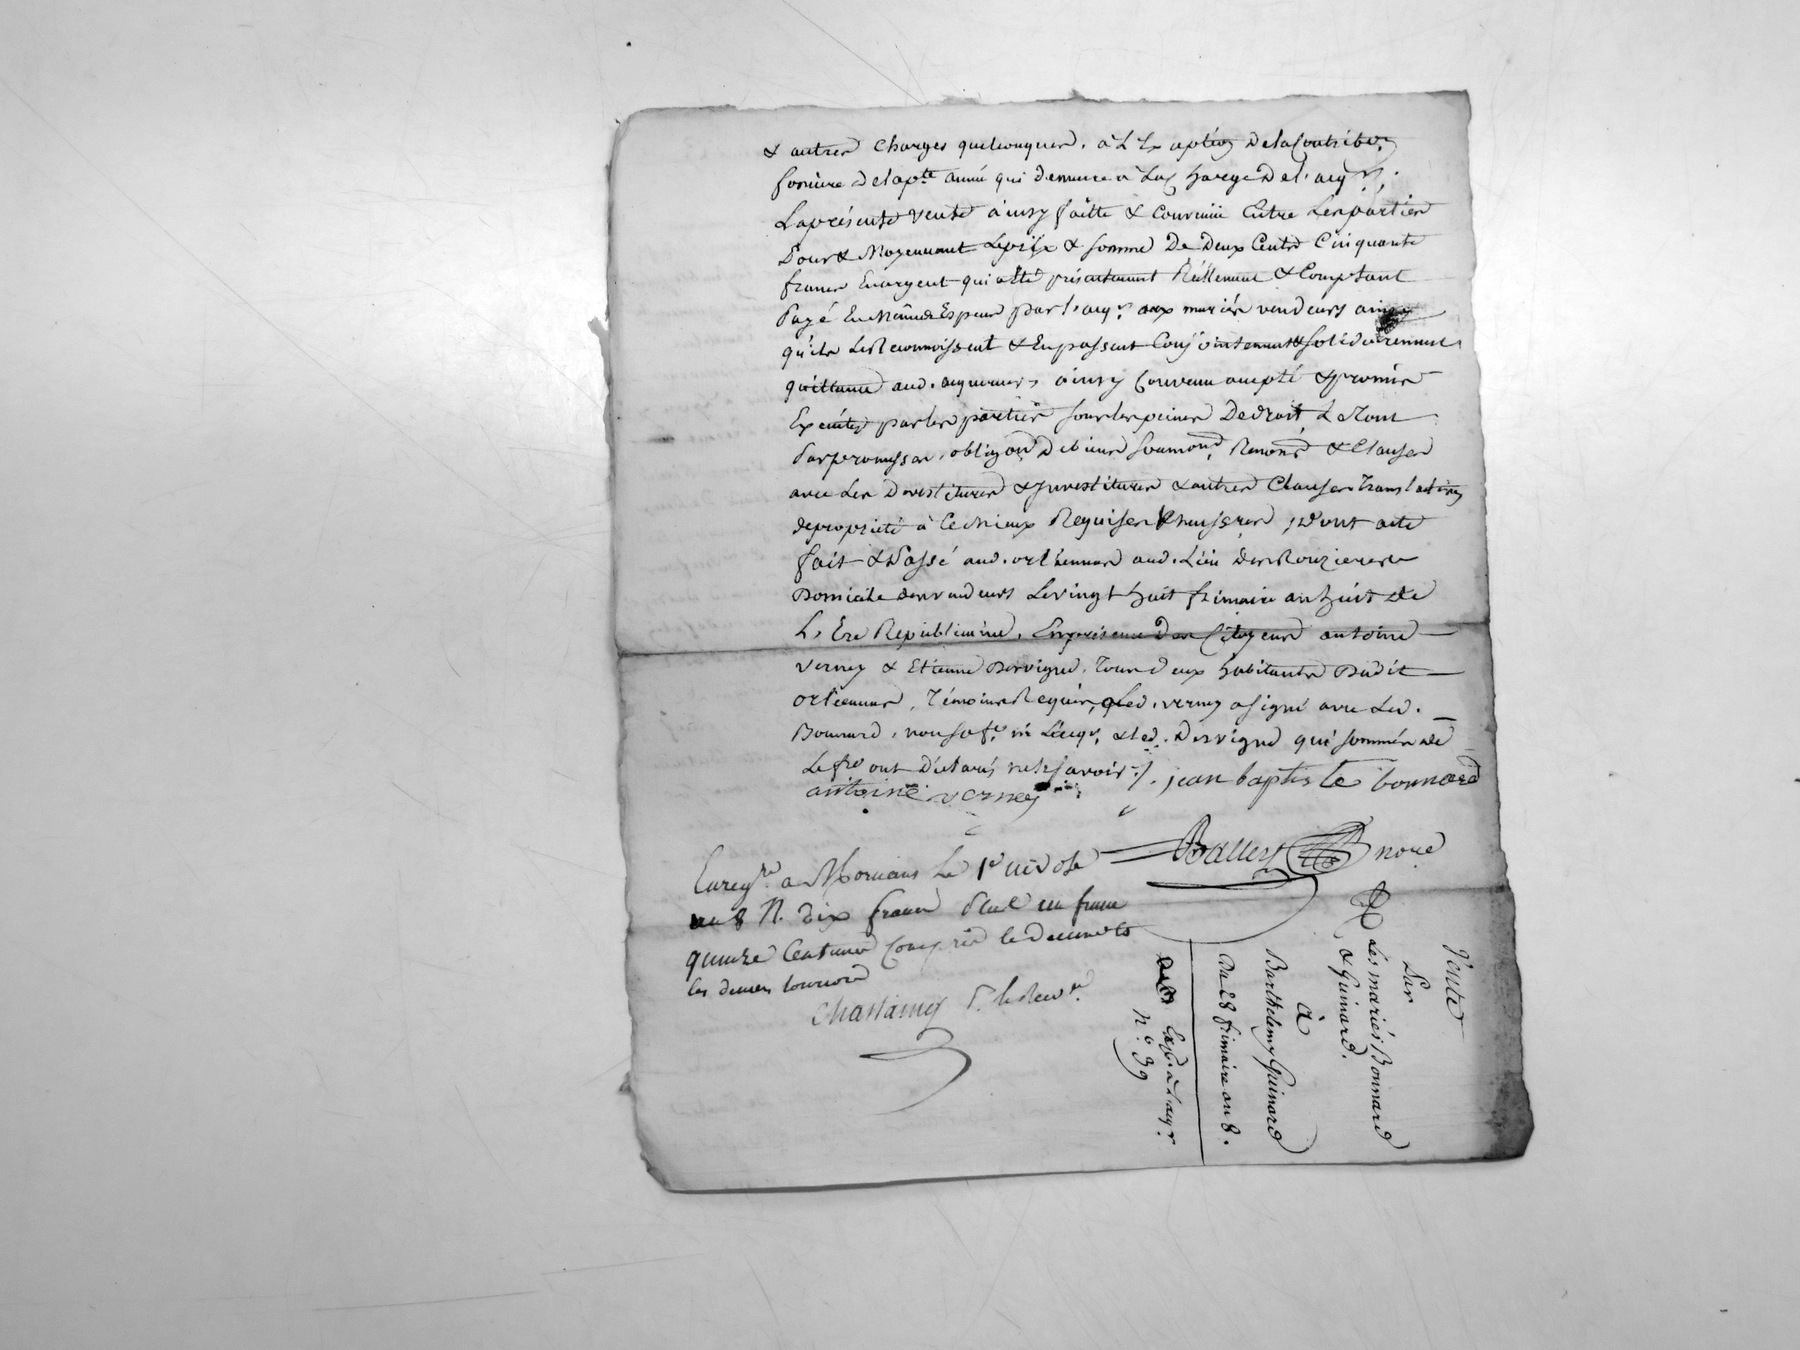 & autres charges quelconques, à L'Exaption de la Contribon
fonciere de la pte année qui demeure à la charge de l'acqr.
La présente vente ainsy faitte & convenue Entre Les parties
Pour & Moyennant Le prix & somme De Deux Cents Cinquante
francs En argent qui a Eté présentement Réellement & Comptant
Payé En Mêmes Especes par l'acqr. aux mariés vendeurs ainsy
qu'ils Le Reconnoissent & En passent Conjointement & solidairement
quittance aud. acquereur, ainsy Convenu accepté & promis
Exécuter par les parties sous les peines De droit, Le Tout
Par promesses, obligaon De biens soumons, Renons & Clauses
avec Les Devestitures & Investitures & autres Clauses Translatives
de propriété à Ce Mieux Requises & necessres, Dont acte
fait & Passé aud. orliennas aud. Lieu des Rouzieres
Domicile des vendeurs Le vingt huit frimaire an huit De
L'Ere Républicaine, En présence Des Citoyens antoine
verney & Etienne Dervigne, Tous deux habitants Dudit
orliennas, Témoins Requis, Led. verney a signé avec Led.
Bonnard, non sa fe. ni L'acqr. & led. Dervigne qui sommés De
Le fre ont Déclaré ne le savoir ./. jean baptiste bonnard
antoine verney
Balley nore
Enregré. a Mornant Le 1er nivose
an 8 R. dix francs Plus un franc
quinze Centimes Compris le decime et
les deniers
Chastaing
Vente
Par
Les mariés Bonnard
& Guinard.
à
Barthelemy Guinard
Du 28 frimaire an 8.
Exp. à L'acqr.
No. 39